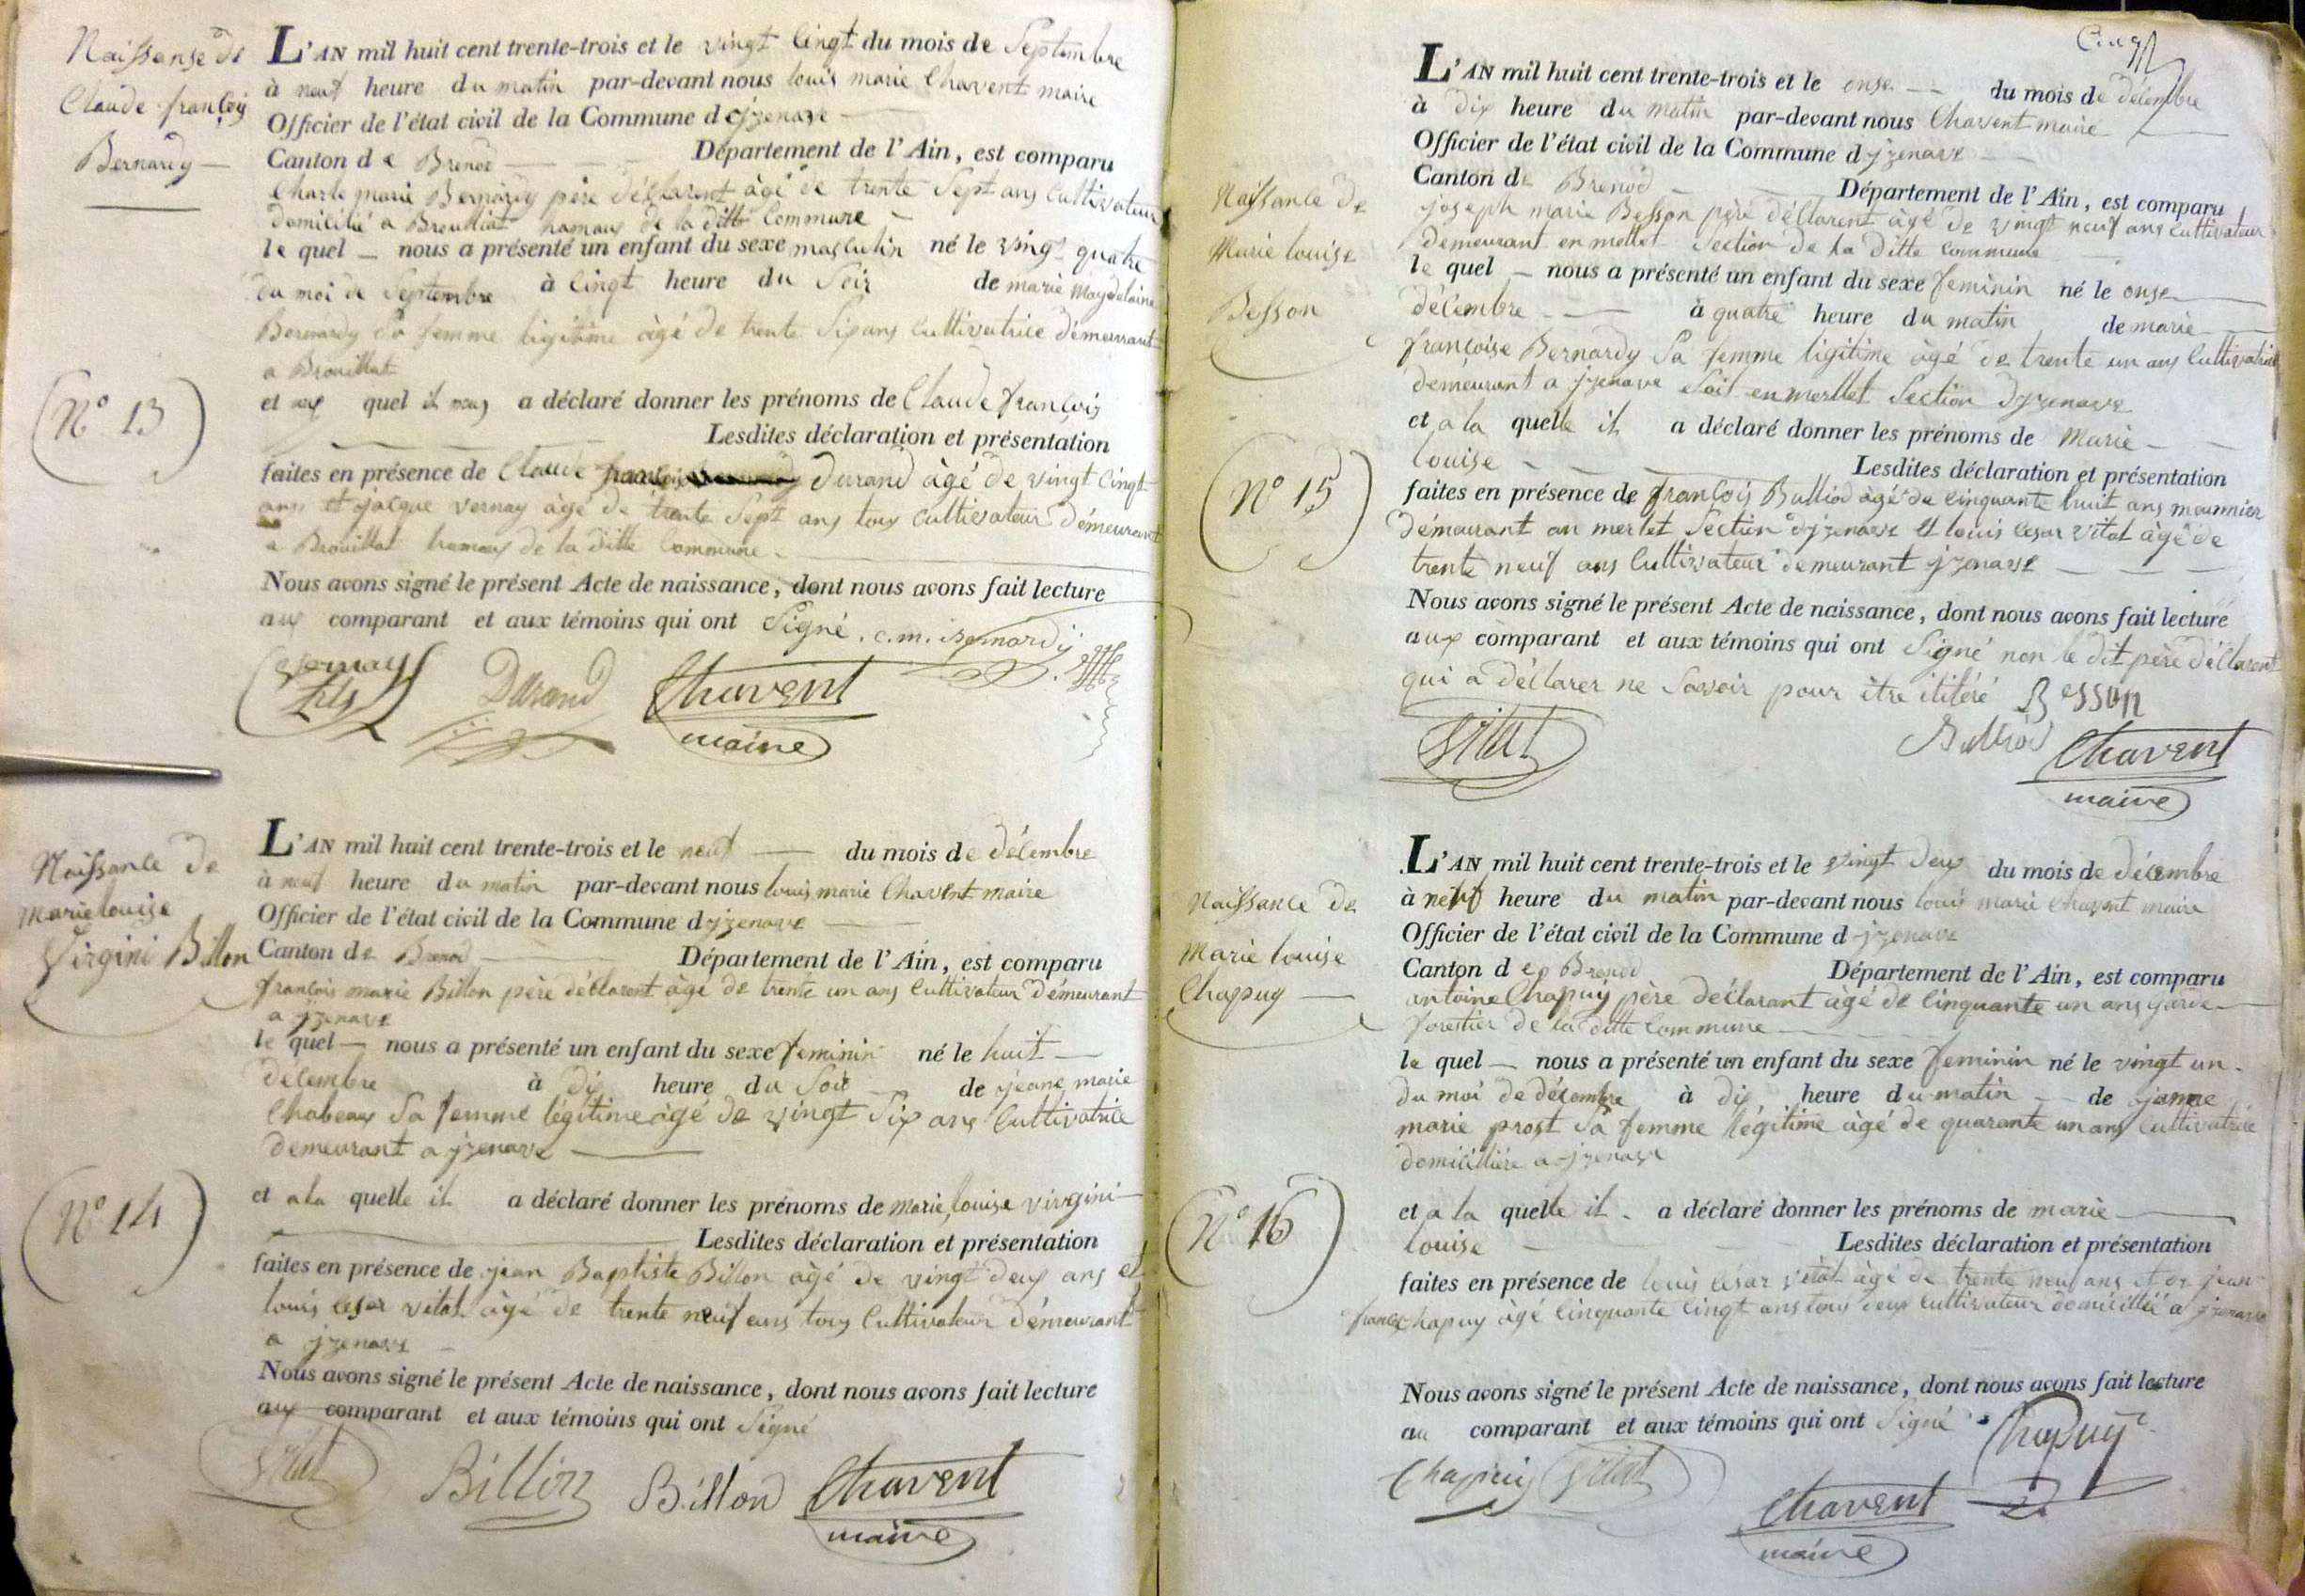 Naissanse de
Claude françois
Bernardy
N° 13
L'AN mil huit cent trente-trois et le vingt cinqt du mois de Septembre
à neuf heure du matin par-devant nous louis marie Chavent maire
Officier de l'état civil de la Commune d'jzenave
Canton de Brenod Département de l'Ain, est comparu
Charle marie Bernardy père déclarent àgé de trente Sept ans Cultivateur
domicilié a Brouillat hamaux de la ditte Commune
le quel nous a présenté un enfant du sexe masculin né le vingt quatre
du moi de Septembre à cinqt heure du Soir de marie Magdelaine
Bernardy Sa femme ligitime àgé de trente Six ans Cultivatrice démeurant
a Brouillat
et quel il a déclaré donner les prénoms de Claude françois
Lesdites déclaration et présentation
faites en présence de Claude Durand àgé de vingt cinqt
ans et jacque vernay àgé de trente Sept ans tous cultivateur démeurant
a Brouillat hamaux de la ditte Commune
Nous avons signé le présent Acte de naissance, dont nous avons fait lecture
aux comparant et aux témoins qui ont Signé. c. m. Bernardy
Vernay fils Durand Chavent
maire
Naissance de
Marie louise
Virgini Billon
N° 14
L'AN mil huit cent trente-trois et le neuf du mois de décembre
à neuf heure du matin par-devant nous louis marie Chavent maire
Officier de l'état civil de la Commune d'jzenave
Canton de Brenod Département de l'Ain, est comparu
françois marie Billon père déclarent àgé de trente un ans Cultivateur démeurant
a jzenave
le quel nous a présenté un enfant du sexe feminin né le huit
décembre à dix heure du Soir de jeane marie
Chabeaux Sa femme légitime àgé de vingt Six ans Cultivatrice
demeurant a jzenave
et a la quelle il a déclaré donner les prénoms de Marie, louise virgini
Lesdites déclaration et présentation
faites en présence de jean Baptiste Billon àgé de vingt deux ans et
louis cesar vitat àgé de trente neuf ans tous Cultivateur démeurant
a jzenave
Nous avons signé le présent Acte de naissance, dont nous avons fait lecture
aux comparant et aux témoins qui ont Signé
Vitat Billon Billon Chavent
maire
Cinq
Naissance de
Marie louise
Besson
N° 15
L'AN mil huit cent trente-trois et le onse du mois de décembre
à dix heure du matin par-devant nous Chavent maire
Officier de l'état civil de la Commune d'jzenave
Canton de Brenod Département de l'Ain, est comparu
joseph marie Besson père déclarent àgé de vingt neuf ans cultivateur
demeurant en mellet Section de la ditte commune
le quel nous a présenté un enfant du sexe feminin né le onse
décembre à quatre heure du matin de marie
françoise Bernardy Sa femme ligitime àgé de trente un ans Cultivatrice
demeurant a jzenave Soit en merllet Section d'jzenave
et a la quelle il a déclaré donner les prénoms de Marie
louise Lesdites déclaration et présentation
faites en présence de françois Balliod àgé de cinquante huit ans meunnier
démeurant au merlet Section d'jzenave et louis cesar vitat àgé de
trente neuf ans Cultivateur demeurant jzenave
Nous avons signé le présent Acte de naissance, dont nous avons fait lecture
aux comparant et aux témoins qui ont Signé non le dit père déclarent
qui a déclarer ne Savoir pour être ilitéré Besson
Vitat Balliod Chavent
maire
Naissance de
Marie louise
Chapuy
N° 16
L'AN mil huit cent trente-trois et le vingt deux du mois de décembre
à neuf heure du matin par-devant nous louis marie Chavent maire
Officier de l'état civil de la Commune d'jzenave
Canton de Brenod Département de l'Ain, est comparu
antoine Chapuy père déclarant àgé de cinquante un ans garde
forestier de la ditte Commune
le quel nous a présenté un enfant du sexe feminin né le vingt un
du moi de décembre à dix heure du matin de janne
marie prost Sa femme légitime àgé de quarante un ans Cultivatrice
domicillière a jzenave
et a la quelle il a déclaré donner les prénoms de marie
louise Lesdites déclaration et présentation
faites en présence de louis césar vitat àgé de trente neuf ans et de jean
françois Chapuy àgé cinquante cinqt ans tous deux Cultivateur domicillié a jzenave
Nous avons signé le présent Acte de naissance, dont nous avons fait lecture
au comparant et aux témoins qui ont Signé Chapuy
Chapuis Vitat
Chavent
maire